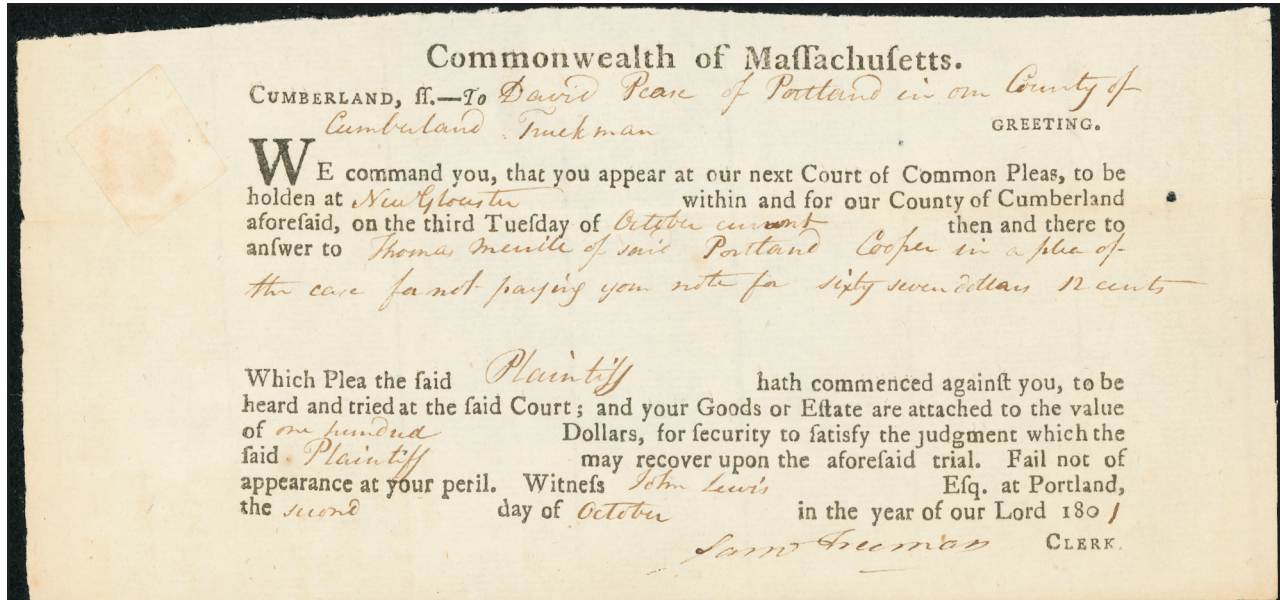 Commonwealth of Maſſachuſetts.
CUMBERLAND, ſſ.—To David Pease of Portland in our County of
Cumberland Truckman GREETING.
WE command you, that you appear at our next Court of Common Pleas, to be
holden at New Gloucester within and for our County of Cumberland
aforeſaid, on the third Tueſday of October current then and there to
anſwer to Thomas Merrile of said Portland Cooper in a plea of
the case for not paying your note for sixty seven dollars 12 cents
Which Plea the ſaid Plaintiff hath commenced againſt you, to be
heard and tried at the ſaid Court; and your Goods or Eſtate are attached to the value
of one hundred Dollars, for ſecurity to ſatisfy the judgment which the
ſaid Plaintiff may recover upon the aforeſaid trial. Fail not of
appearance at your peril. Witneſs John Lewis Eſq. at Portland,
the second day of October in the year of our Lord 1801
Sam Freeman CLERK.